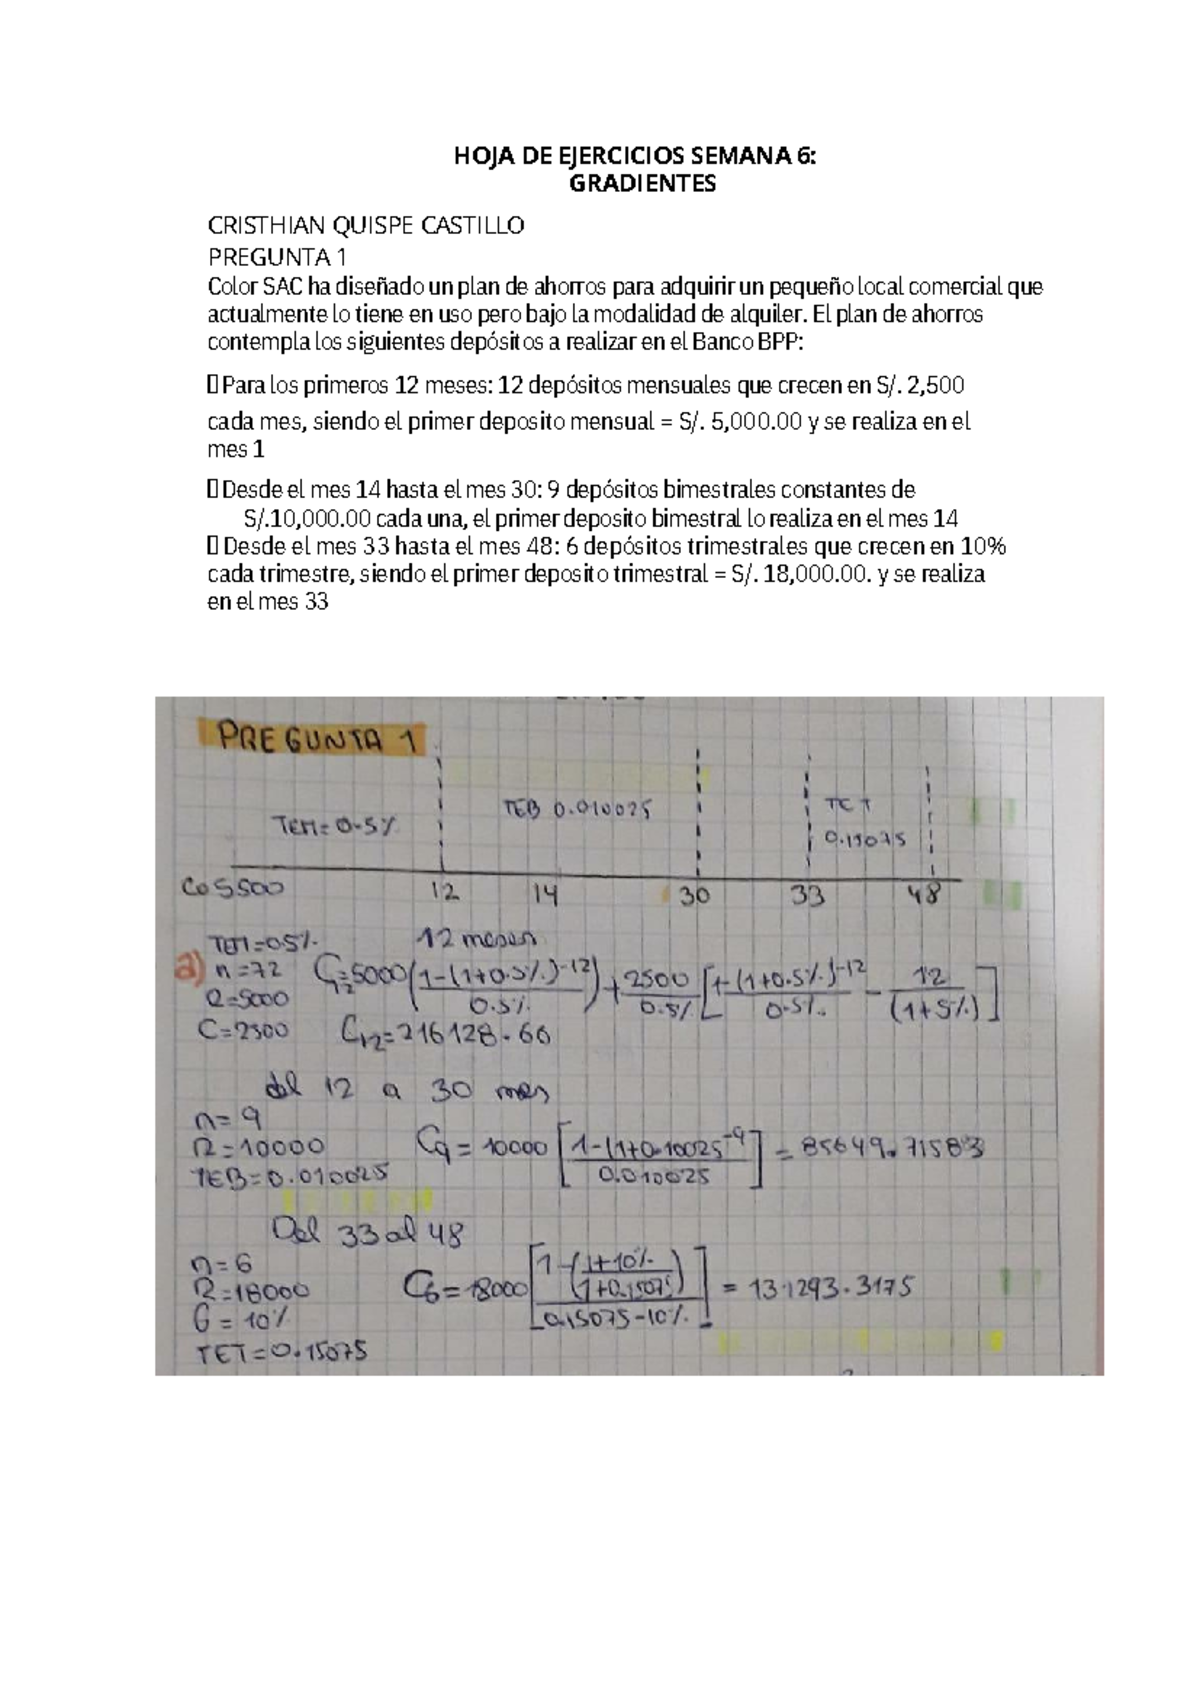 HOJA DE EJERCICIOS SEMANA 6:
GRADIENTES
CRISTHIAN QUISPE CASTILLO
PREGUNTA 1
Color SAC ha diseñado un plan de ahorros para adquirir un pequeño local comercial que
actualmente lo tiene en uso pero bajo la modalidad de alquiler. El plan de ahorros
contempla los siguientes depósitos a realizar en el Banco BPP:
Para los primeros 12 meses: 12 depósitos mensuales que crecen en S/. 2,500
cada mes, siendo el primer deposito mensual = S/. 5,000.00 y se realiza en el
mes 1
Desde el mes 14 hasta el mes 30: 9 depósitos bimestrales constantes de
S/.10,000.00 cada una, el primer deposito bimestral lo realiza en el mes 14
Desde el mes 33 hasta el mes 48: 6 depósitos trimestrales que crecen en 10%
cada trimestre, siendo el primer deposito trimestral = S/. 18,000.00. y se realiza
en el mes 33
PREGUNTA 1
TEM= 0.5% TEB 0.010025 TET
0.15075
Co 5500 12 14 30 33 48
TEM=0.5% 12 meses
a) n=72 C12=5000(1-(1+0.5%)-12/0.5%)+2500/0.5%[1-(1+0.5%)-12/0.5% - 12/(1+5%)]
R=5000
C=2500 C12=216128.66
del 12 a 30 mes
n=9
R=10000 C9=10000[1-(1+0.10025-9/0.010025]=85649.71583
TEB=0.010025
Del 33 al 48
n=6
R=18000 C6=18000[1-(1+10%/1+0.15075)/0.15075-10%]=131293.3175
G=10%
TET=0.15075